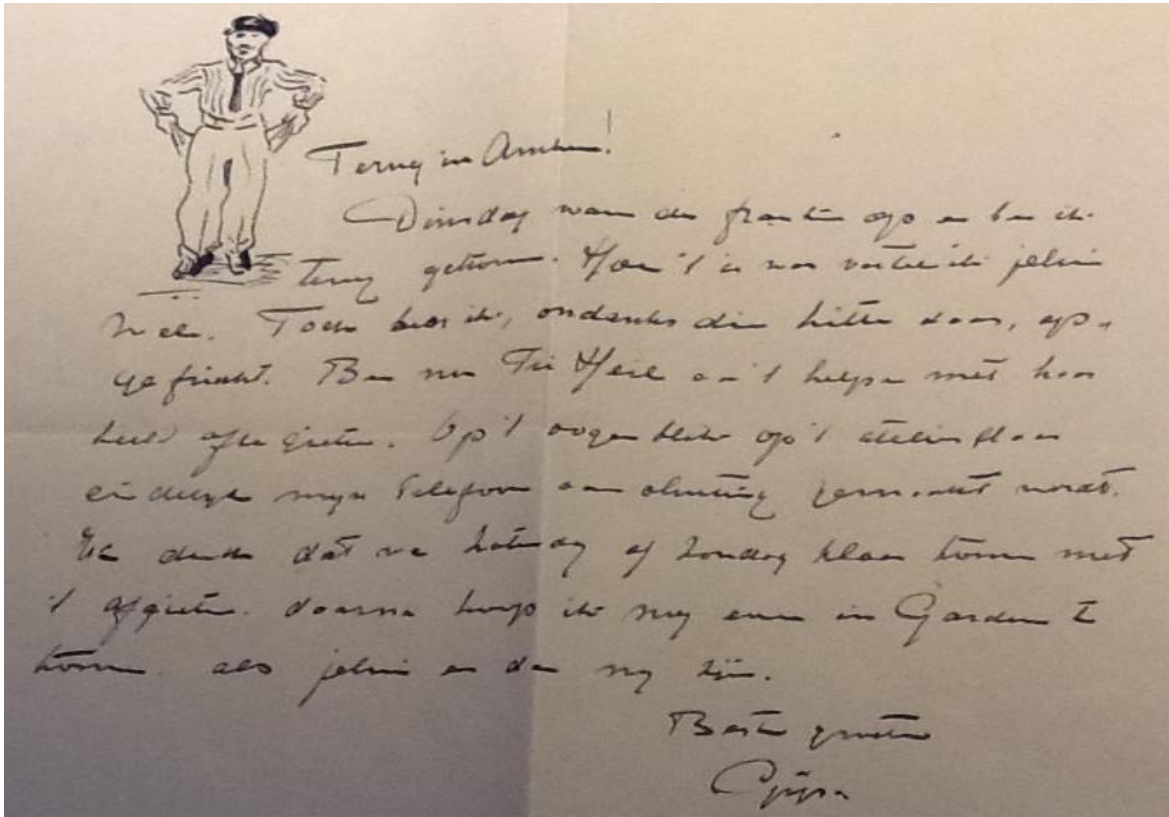 Terug in Arnhem!
Dinsdag waren de fronten op en ben ik
terug getoren. Hoe 't is was vertel ik jelui
wel. Toch ben ik, ondanks die hitte daar, op-
gefrischt. Ben nu Tri Heil aan 't helpen met haar
beeld af te gieten. Op 't oogenblik op 't atelier daar
eindelijk mijn telefoon aansluiting gemaakt wordt.
Ik denk dat we Zaterdag of Zondag klaar komen met
't afgieten. daarna hoop ik nog even in Garderen te
komen. als jelui er dan nog zijn.
Beste groeten
Gijs